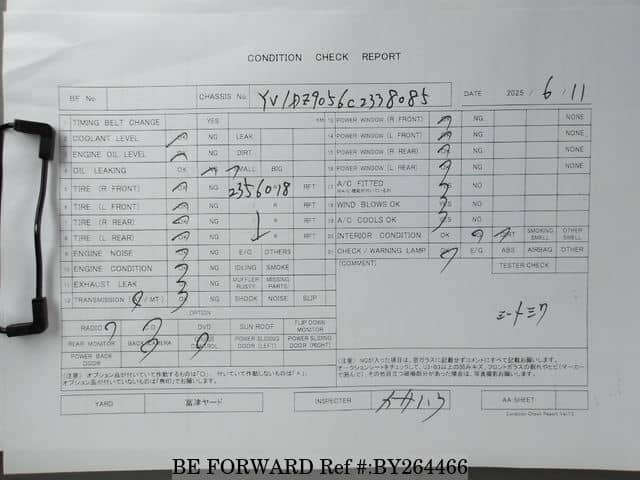 CONDITION CHECK REPORT
BF No CHASSIS No. YV1DZ9056C2338085 DATE 2025 / 6 / 11
1 TIMING BELT CHANGE YES KM
2 COOLANT LEVEL OK NG LEAK
3 ENGINE OIL LEVEL OK NG DIRT
4 OIL LEAKING OK NG SMALL BIG
5 TIRE (R FRONT) NG 2356018 RFT
6 TIRE (L FRONT) NG RFT
7 TIRE (R REAR) NG RFT
8 TIRE (L REAR) NG RFT
9 ENGINE NOISE NG E/G OTHERS
10 ENGINE CONDITION NG IDLING SMOKE
11 EXHAUST LEAK NG MUFFLER RUSTY MISSING PARTS
12 TRANSMISSION (AT / MT) NG SHOCK NOISE SLIP
OPTION
RADIO CD DVD SUN ROOF FLIP DOWN MONITOR
REAR MONITOR BACK CAMERA CRUISE CONTROL POWER SLIDING DOOR (LEFT) POWER SLIDING DOOR (RIGHT)
POWER BACK DOOR
(注意) オプション品が付いていて作動するものは「○」、付いていて作動しないものは「×」、
オプション品が付いていないものは「無印」でお願いします。
13 POWER WINDOW (R FRONT) NG NONE
14 POWER WINDOW (L FRONT) NG NONE
15 POWER WINDOW (R REAR) NG NONE
16 POWER WINDOW (L REAR) NG NONE
17 A/C FITTED YES NO
18 WIND BLOWS OK YES NO
19 A/C COOLS OK YES NO
20 INTERIOR CONDITION OK DIRT SMOKING SMELL OTHER SMELL
21 CHECK / WARNING LAMP OK E/G ABS AIRBAG OTHER
(COMMENT) TESTER CHECK
シートミク
YARD 富津ヤード INSPECTER AA SHEET
Condition Check Report Ver.
BE FORWARD Ref #:BY264466